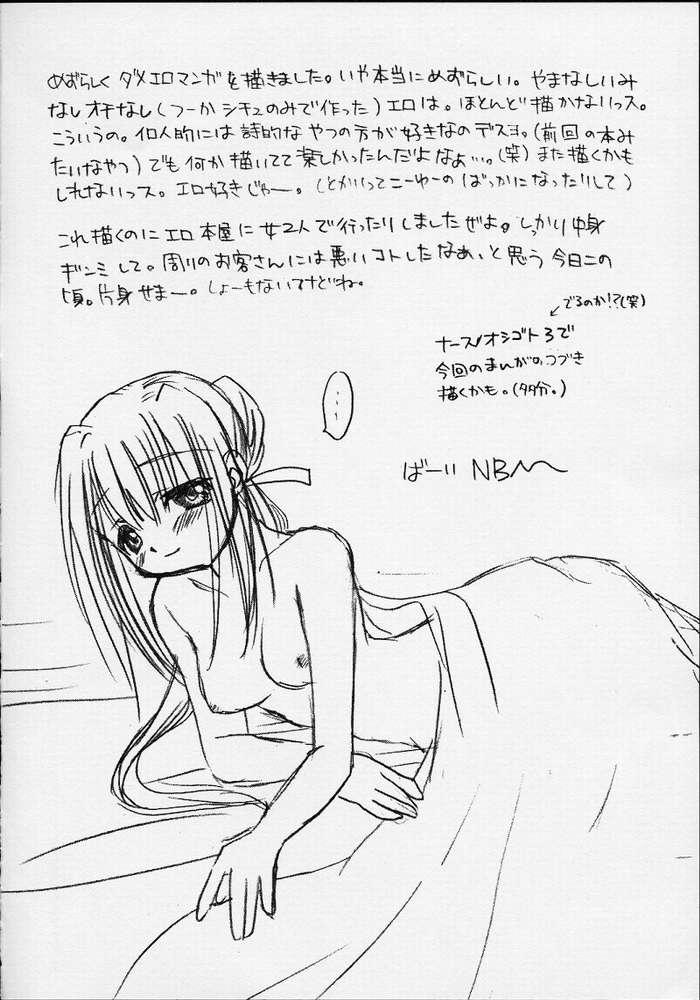 めずらしく ダメエロマンガを描きました。いや本当にめずらしい。やまなしいみ
なしオチなし(つーか シチュのみで作った)エロは。ほとんど描かないっス。
こういうの。個人的には詩的なやつの方が好きなのデスヨ。(前回の本み
たいなやつ)でも何か描いてて楽しかったんだよなぁ…。(笑)また描くかも
しれないっス。エロ好きじゃー。(とかいってこーゆーの ばっかになったりして)
これ描くのにエロ本屋に女2人で行ったりしましたぜよ。しっかり中身
ギンミして。周りのお客さんには悪いコトしたなぁ、と思う今日この
頃。片身せまー。しょーもないですどね。
でるのか!?(笑)
ナースノオシゴト3で
今回のまんがの、つづき
描くかも。(多分。)
…
ばーい NB